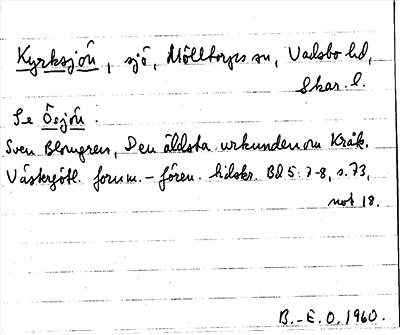 Kyrksjön, sjö, Mölltorps sn, Vadsbo hd,
Skar. l.
Se Ösjön.
Sven Blomgren, Den äldsta urkunden om Kråk.
Västergötl. fornm.-fören. tidskr. Bd 5: 7-8, s. 73,
not 18.
B.-E. O. 1960.